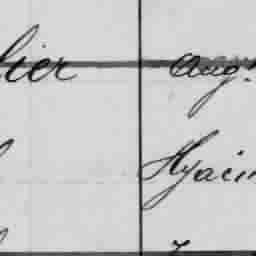 lier Aug.
Hyacin